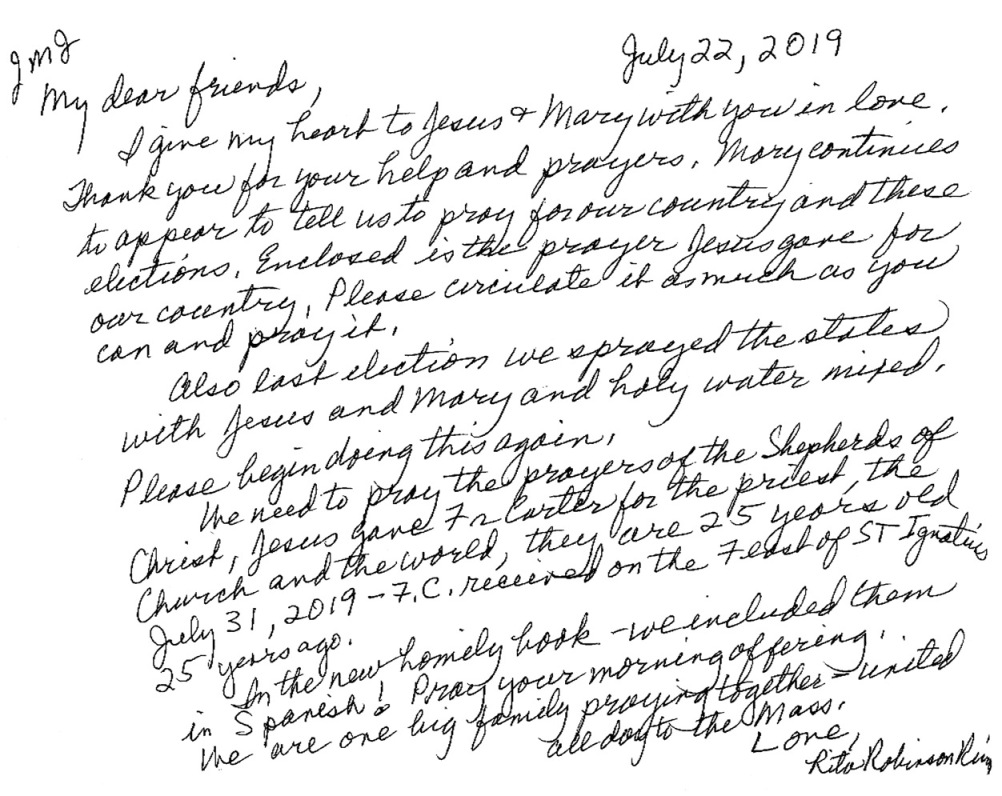 JMJ
July 22, 2019
My dear friends,
I give my heart to Jesus & Mary with you in love.
Thank you for your help and prayers. Mary continues
to appear to tell us to pray for our country and these
elections. Enclosed is the prayer Jesus gave for
our country. Please circulate it as much as you
can and pray it.
Also last election we sprayed the states
with Jesus and Mary and holy water mixed.
Please begin doing this again.
We need to pray the prayers of the Shepherds of
Christ, Jesus gave Fr Carter for the priest, the
Church and the world, they are 25 years old
July 31, 2019 - F.C. received on the Feast of ST Ignatius
25 years ago.
In the new homily book - we included them
in Spanish! Pray your morning offering.
We are one big family praying together - united
all day to the Mass.
Love,
Rita Robinson Ring